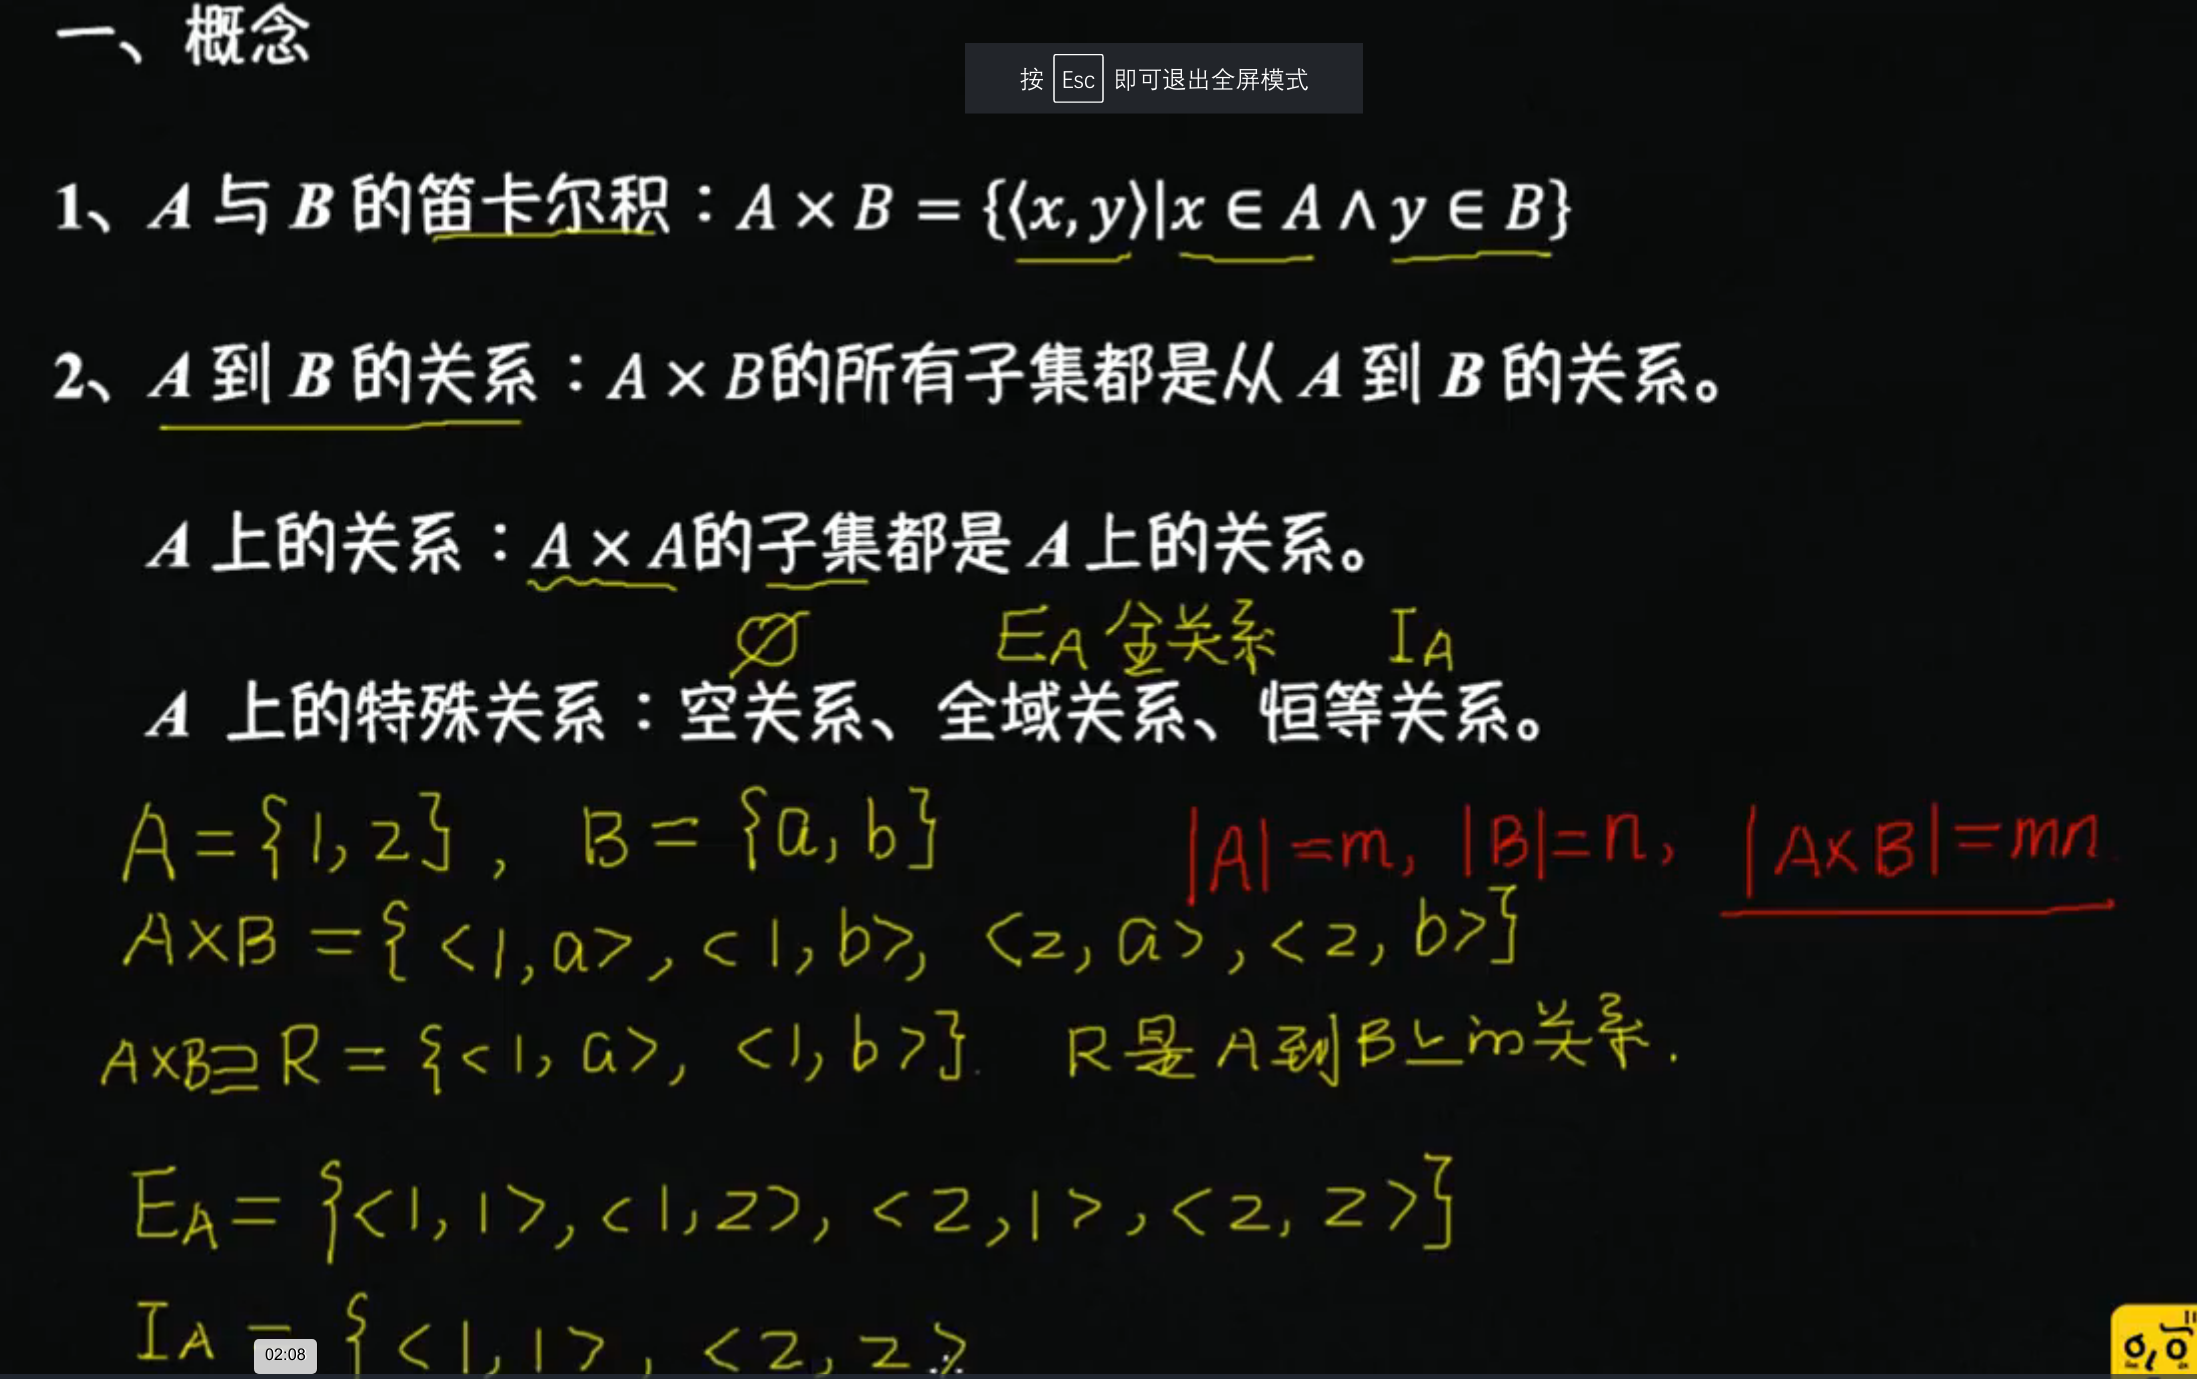 一、概念
按 Esc 即可退出全屏模式
1、A 与 B 的笛卡尔积：A × B = {⟨x, y⟩|x ∈ A ∧ y ∈ B}
2、A 到 B 的关系：A × B的所有子集都是从 A 到 B 的关系。
A 上的关系：A × A的子集都是 A 上的关系。
∅ E_A 全关系 I_A
A 上的特殊关系：空关系、全域关系、恒等关系。
A={1,2}, B={a,b} |A|=m, |B|=n, |A×B|=mn.
A×B={<1,a>,<1,b>,<2,a>,<2,b>}
A×B⊇R={<1,a>,<1,b>}. R是A到B上的关系.
E_A={<1,1>,<1,2>,<2,1>,<2,2>}
I_A={<1,1>,<2,2>
02:08